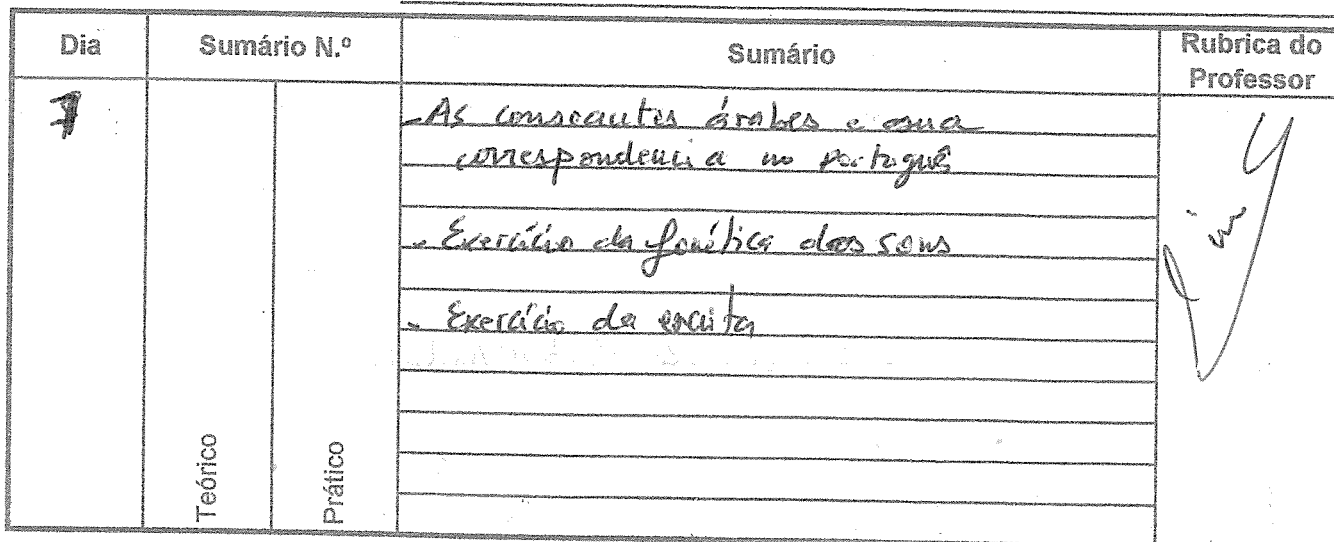 Dia
Sumário N.º
Sumário
Rubrica do
Professor
7
- As consoantes árabes e a sua
correspondencia no português
- Exercício da fonética dos sons
- Exercício da escrita
Teórico
Prático